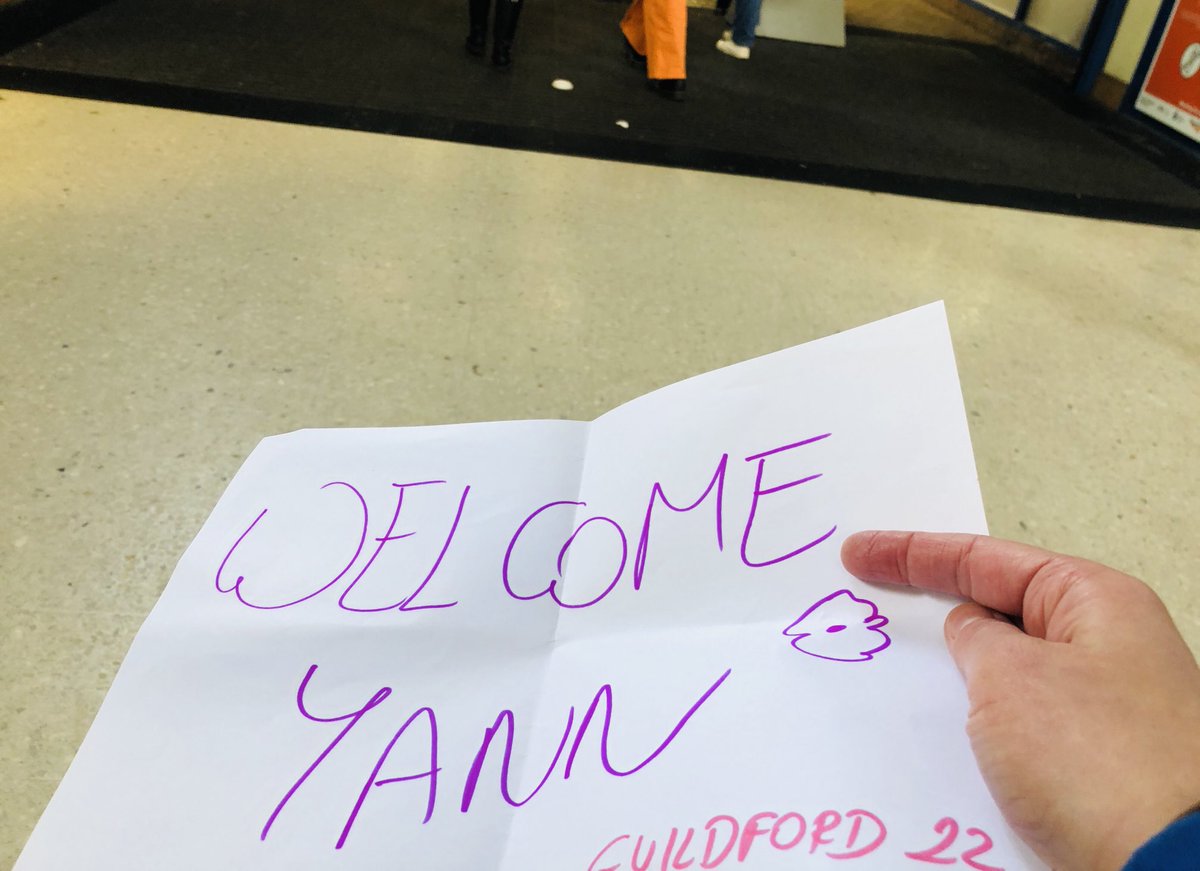 WELCOME
YANN
GUILDFORD 22